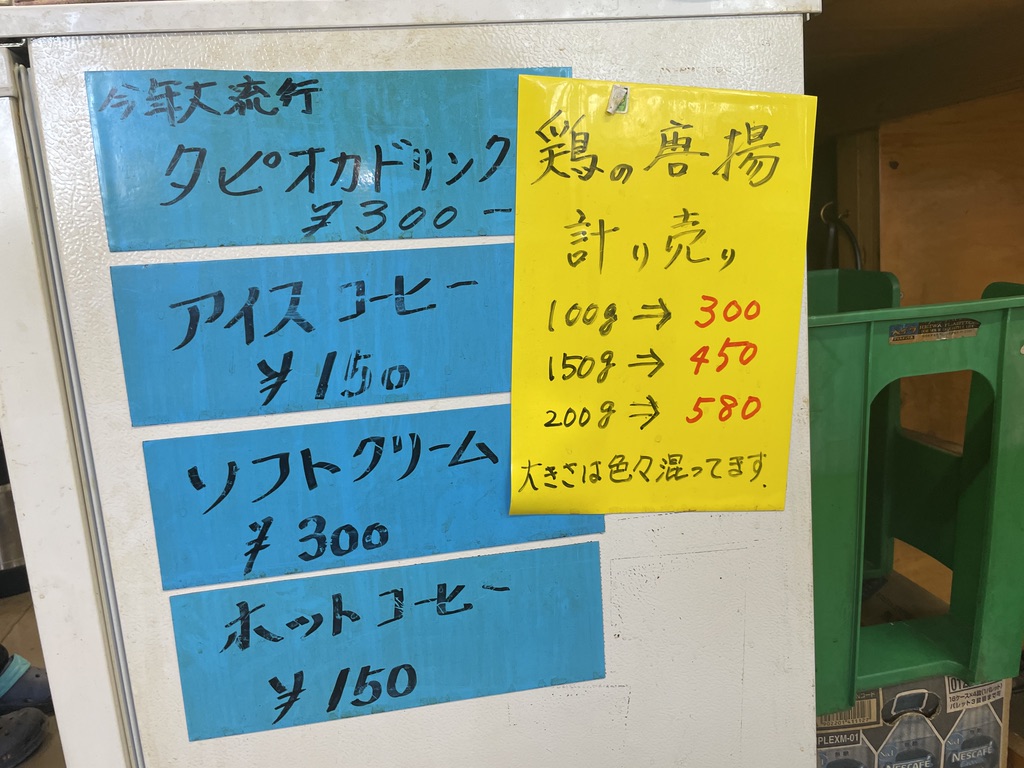 今年大流行
タピオカドリンク
¥300-
アイスコーヒー
¥150
ソフトクリーム
¥300
ホットコーヒー
¥150
鶏の唐揚
計り売り
100g→300
150g→450
200g→580
大きさは色々混ってます.
PLEXM-01
NESCAFÉ
NESCAFÉ